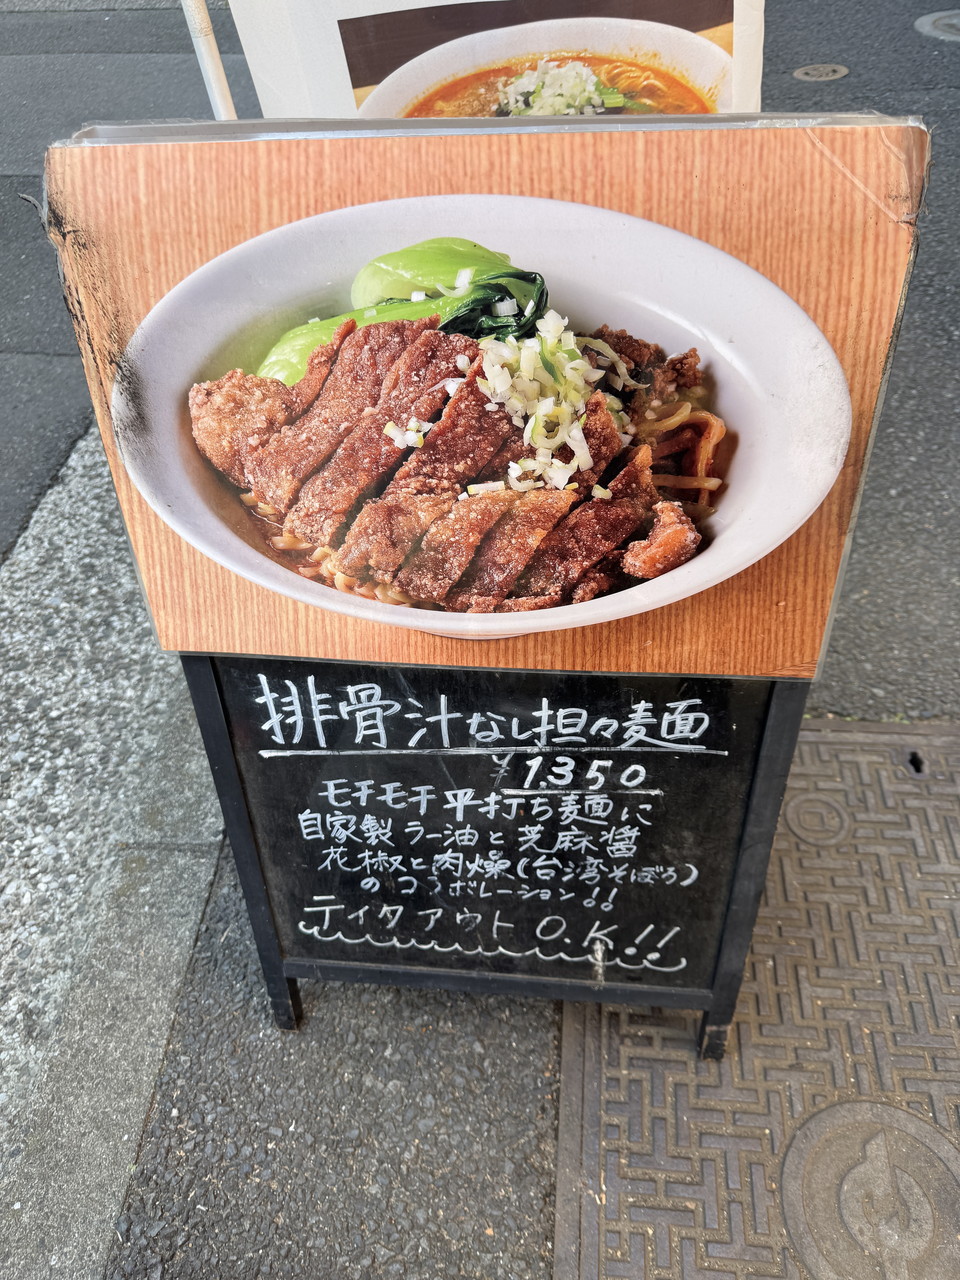 排骨汁なし担々麺
¥1.350
モチモチ平打ち麺に
自家製ラー油と芝麻醤
花椒と肉燥(台湾そぼろ)
のコラボレーション!!
ティクアウトO.K!!